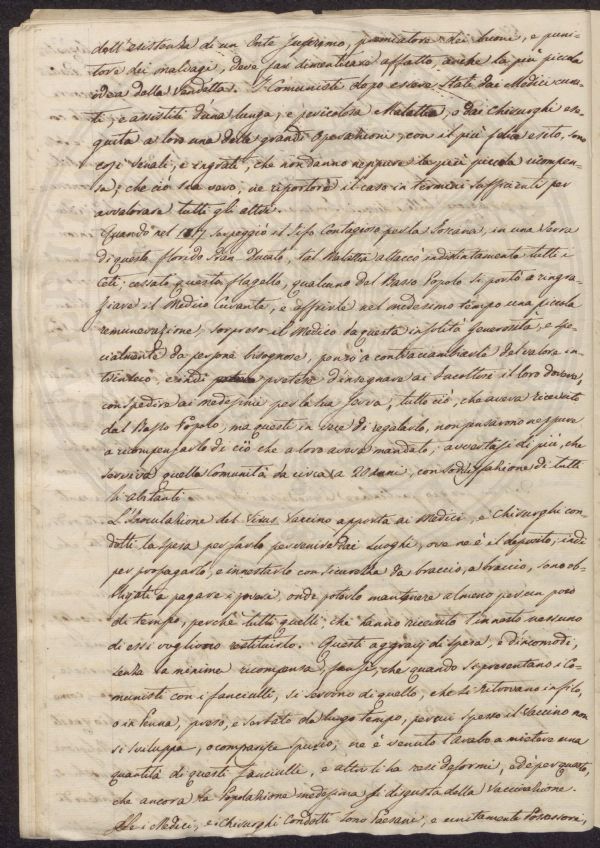 dell'esistenza di un Ente Supremo, premiatore dei buoni, e puni-
tore dei malvagi, deve far dimenticare affatto, anche la più piccola
idea della Vendetta. I Comunisti dopo essere stati dai Medici cura-
ti, e assistiti d'una lunga, e pericolosa Malattia, o dai Chirurghi ese-
guita a loro una delle grandi operazioni, con il più felice esito, sono
così venali, e ingrati, che non danno neppure la più piccola ricompen-
sa; che ciò sia vero, ne riporterò il caso in termini sufficienti per
avvalorare tutti gli altri.
Quando nel 1817 serpeggiò il Tifo Contagioso per la Toscana, in una Terra
di questo florido Gran Ducato, tal Malattia attaccò indistintamente tutti i
Ceti; cessato questo flagello, qualcuno del Basso Popolo si portò a ringra-
ziare il Medico Curante, e offrirle nel medesimo tempo una piccola
remunerazione; sorpreso il Medico da questa insolita generosità, e spe-
cialmente da persone bisognose, pensò a contraccambiarle del valore in-
trinseco, e indi pretese d'insegnare ai Facoltosi il loro dovere,
con spedire ai medesimi per la sua Serva, tutto ciò, che aveva ricevuto
dal Basso Popolo, ma questi in vece di regalarlo, non pensarono neppure
a ricompensarlo di ciò che a loro aveva mandato; avvertasi di più, che
serviva quella Comunità da circa a 20 anni, con sodisfazione di tutti
li abitanti.
L'Inoculazione del Virus Vaccino apporta ai Medici, e Chirurghi con-
dotti la spesa per farlo pervenire dai Luoghi, ove ne è il deposito; indi
per propagarlo, e innestarlo con sicurezza da braccio, a braccio, sono ob-
bligati a pagare i poveri, onde poterlo mantenere almeno per un poco
di tempo, perchè tutti quelli, che hanno ricevuto l'innesto nessuno
di essi vogliono restituirlo. Questi aggravj di spesa, e d'incomodi,
senza la minima ricompensa, fan sì, che quando si presentano i Co-
munisti con i fanciulli, si servono di quello, che si ritrovano in filo,
o in Penna, preso, e serbato da lungo tempo, per cui spesso il Vaccino non
si sviluppa, o comparisce spurio; ne è venuto l'Arabo a mietere una
quantità di questi fanciulli, e altri li ha resi deformi, ed è per questo,
che ancora la Popolazione medesima si disgusta della Vaccinazione.
Se i Medici, e i Chirurghi Condotti sono Paesani, e unitamente Possessori,